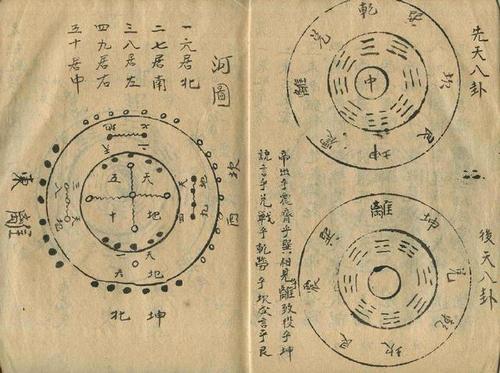 先天八卦
乾
兌
離
震
坤
艮
坎
中
後天八卦
離
坤
兌
乾
坎
艮
震
巽
帝出乎震齊乎巽相見乎離致役乎坤
說言乎兌戰乎乾勞乎坎成言乎艮
河圖
一六居北
二七居南
三八居左
四九居右
五十居中
天
五
地
十
坎
西
東
離
天
地
六
北
坤